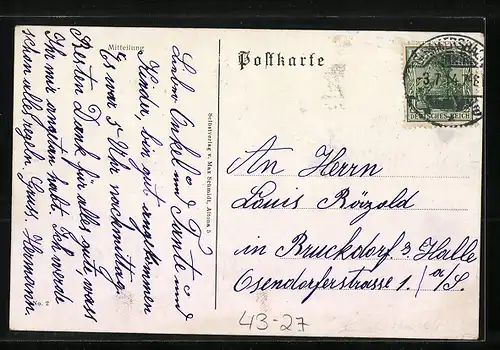 Mitteilung
Postkarte
Lieber Onkel und Tante und
Kinder, bin gut angekommen
Es war 5 Uhr nachmittag.
Besten Dank für alles gute, wass
Ihr mir angetan habt. Ich werde
schon alle regeln Gruss, Hermann.
Selbstverlag v. Max Schmidt, Altona. 5
DEUTSCHES REICH
An Herrn
Louis Rözold
in Bruckdorf 3. Halle
Osendorferstrasse 1. a/S.
43-27